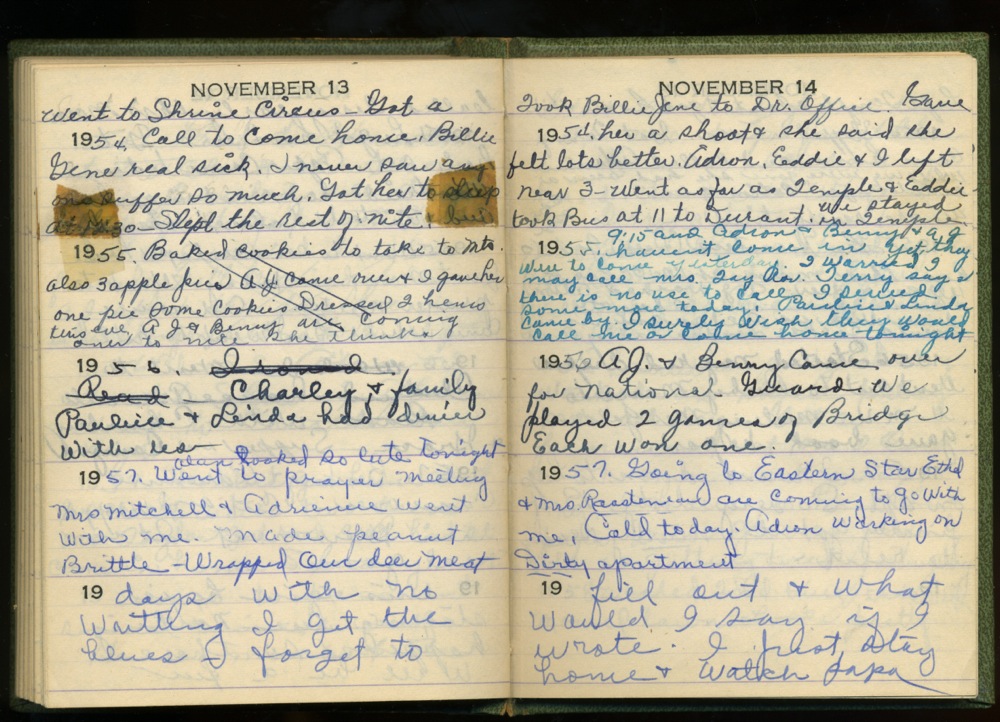 NOVEMBER 13
Went to Shrine Circus - Got a
1954. Call to come home. Billie
Gene real sick. I never saw any
one suffer so much. Got her to sleep
at 12:30 - Slept the rest of nite
1955. Baked cookies to take to Mts.
also 3 apple pies A.J. Came over & I gave her
one pie some cookies. Dressed 2 hens
this eve. A J & Benny are coming
over to nite she thinks
1956. I roned
Read - Charley & family
Pauline & Linda had diner
with us
Alan looked so cute tonight
1957. Went to prayer meeting
Mrs Mitchell & Adrienne went
with me. Made peanut
Brittle - Wrapped Our deer meat
19 days with no
writting I get the
blues I forget to
NOVEMBER 14
Took Billie Jene to Dr. Office. Gave
1954. her a shoot & she said she
felt lots better. Adron, Eaddie & I left
near 3 - Went as far as Temple & Eaddie
took Bus at 11 to Durant. We stayed
in Temple
9:15 and Adron & Benny & A.J.
1955. havent come in yet they
were to come yesterday. I worried I
may call Mrs. Ivy Rev. Terry says
there is no use to call. I served
some more today. Pauline & Linda
came by. I surely wish they would
call me or come home tonight
1956 A.J. & Benny Came over
for National Guard. We
played 2 games of Bridge
Each won one.
1957. Going to Eastern Star Ethel
& Mrs. are coming to go with
me, Cold today. Adron working on
Dirty apartment
19 fill out & what
would I say if I
wrote. I just stay
home & watch papa